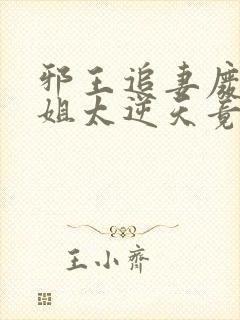 邪王追妻废
姐太逆天竟
王小齐